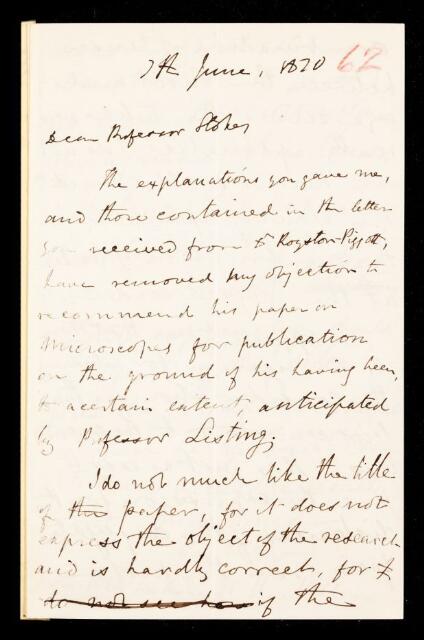 7th June, 1870 62
Dear Professor Stokes
The explanations you gave me,
and those contained in the letter
you received from Dr Royston-Pigott,
have removed my objection to
recommend his paper on
Microscopes for publication
on the ground of his having been,
to a certain extent, anticipated
by Professor Listing.
I do not much like the title
of this paper, for it does not
express the object of the research
and is hardly correct, for I
do not see how if the